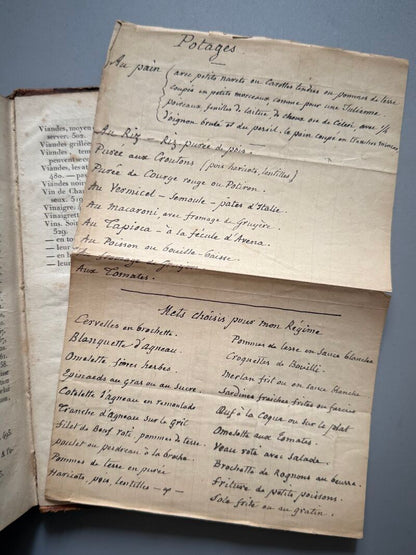 Viandes, moyen
server. 502.
Viandes grillées
Viandes, tem
peuvent se co
Viandes, les at
480. — pa
Viandes noi
Vin de Char
seux. 505.
Vinaigre.
Vinaigrett
Vins. Soin
529.
— en to
— leur
— en
— leur
Potages.
Au pain (avec petits navets ou Carottes tendres ou pommes de terre
coupés en petits morceaux comme pour une Julienne.
poireaux, feuilles de laitue, de choux ou de Céleri, avec 1/4
d'oignon brulé et du persil. le pain coupé en tranches minces
Au Riz — Riz purée de pois —
Purée aux Croutons (pois haricots, lentilles)
Purée de Courge rouge ou Potiron.
Au Vermicel — Semoule — pâtes d'Italie.
Au macaroni avec fromage de Gruyère.
Au Tapioca — à la fécule d'Avena.
Au Poisson ou bouille-baisse.
fromage de Gruyère
Aux Tomates.
Mets choisis pour mon Régime
Cervelles en brochette.
Blanquette d'agneau.
Omelette fines herbes.
Epinards au gras ou au sucre.
Cotelette d'agneau en remoulade
Tranche d'agneau sur le gril
Filet de Bœuf roti pommes de terre.
poulet ou perdreau à la broche.
Pommes de terre en purée
Haricots, pois, lentilles —
Pommes de terre en sauce blanche
Croquettes de Bouilli.
Merlan frit ou en sauce blanche
Sardines fraiches frites ou farcies
Œuf à la Coque ou sur le plat
Omelette aux tomates.
Veau roti avec salade.
Brochette de Rognons au beurre.
Friture de petits poissons.
Sole frite ou au gratin.